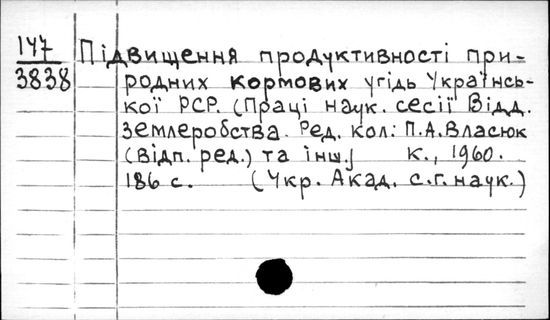 147
3838
Підвищення продуктивності при-
родних кормових угідь Українсь-
кої РСР. (Праці наук. сесії Відд.
землеробства. Ред. кол.: П.А.Власюк
(відп. ред.) та інш.) К., 1960.
186 с. (Укр. Акад. с.г. наук.)